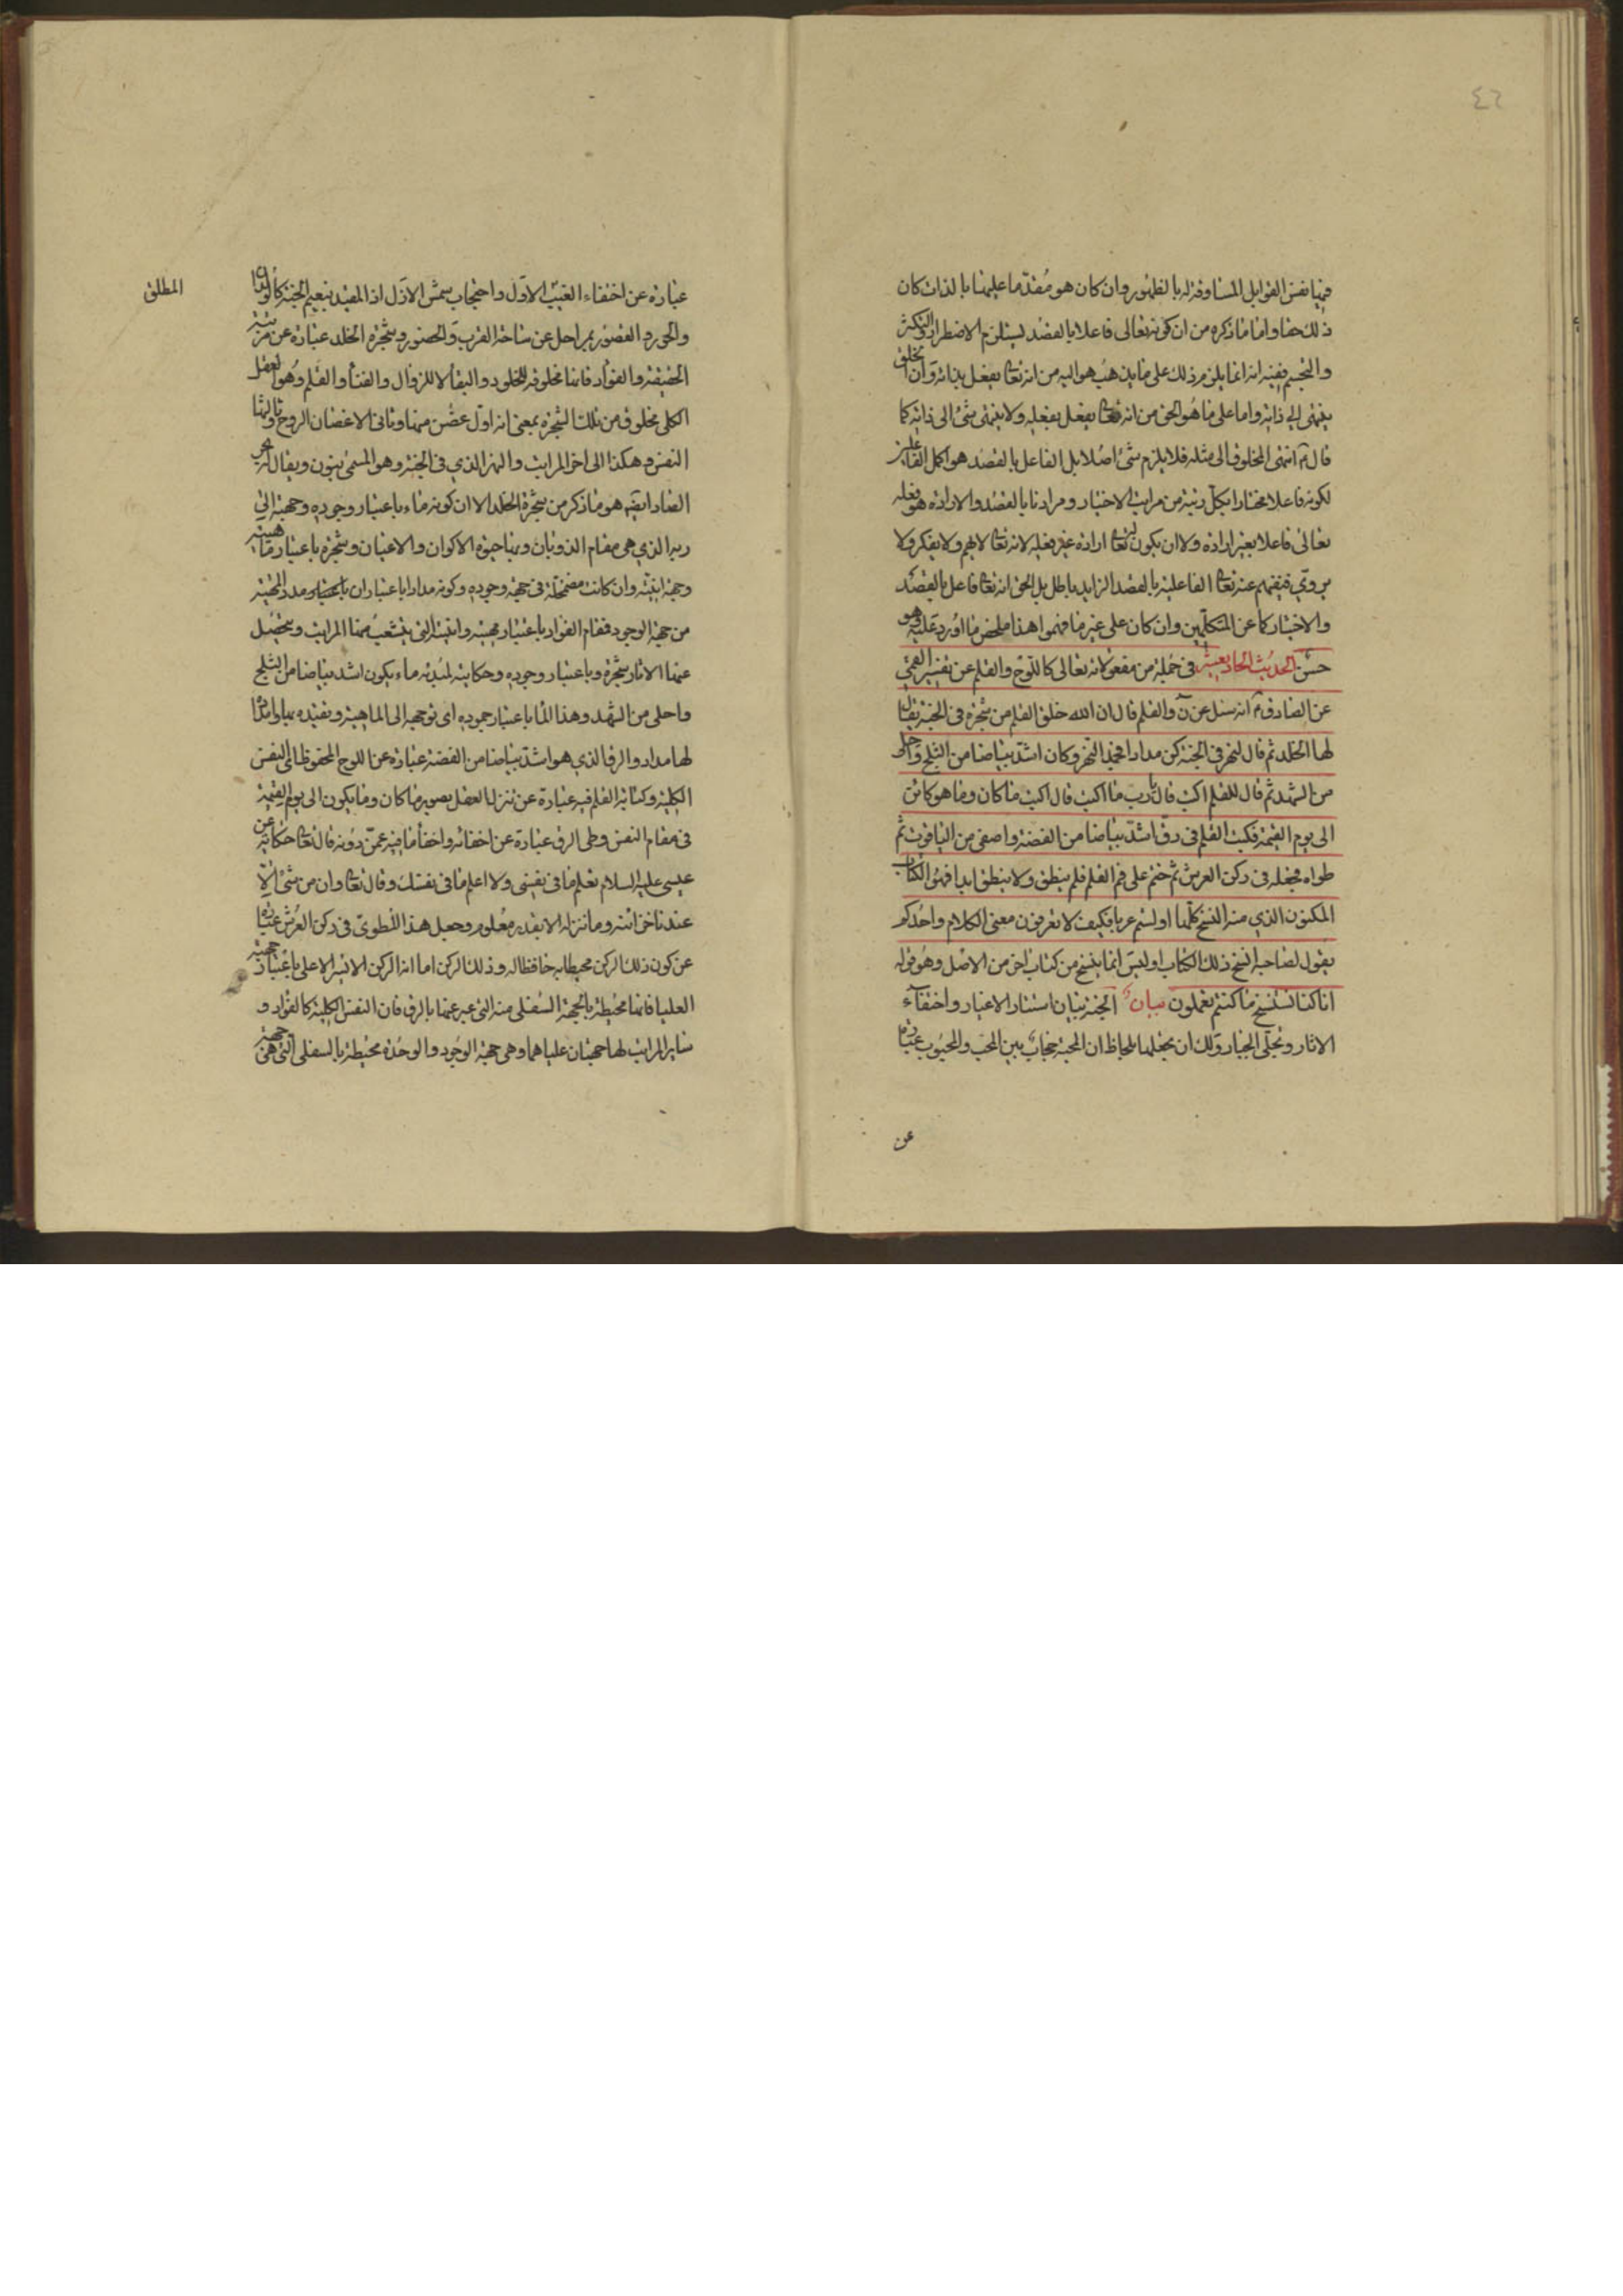 ٤٦
فيها نفس القوابل المساوقة له بالظهور وان كان هو مقدما عليها بالذات كان
ذلك حقا واما ما ذكره من ان كونه تعالى فاعلا بالقصد يستلزم الاضطرار والتكثر
والتجسم ففيه انه انما يلزم ذلك على ما يذهب هو اليه من انه تعا يفعل بذاته وان الخلق
ينتهى الى ذاته واما على ما هو الحق من انه تعا يفعل بفعله ولا ينتهى شئ الى ذاته كما
قال ع انتهى المخلوق الى مثله فلا يلزم شئ اصلا بل الفاعل بالقصد هو اكمل الفاعلين
لكونه فاعلا مختارا بكل رتبة من مراتب الاختيار ومرادنا بالقصد والارادة هو فعله
تعالى فاعلا بغير ارادة ولا ان يكون له تعا ارادة غير فعله لانه تعا لا يهم ولا يفكر ولا
يروّي فنفيهم عنه تعا الفاعلية بالقصد الزايد باطل بل الحق انه تعا فاعل بالقصد
والاختيار كما عن المتكلمين وان كان على غير ما فهموا هذا ملخص ما اورد عليه وهو
حسن الحديث الحاديعشر فى جملة من مفعولاته تعالى كاللوح والقلم عن تفسير القمي
عن الصادق ع انه سئل عن ن والقلم قال ان الله خلق القلم من شجرة فى الجنة يقال
لها الخلد ثم قال لنهر فى الجنة كن مدادا فجمد النهر وكان اشد بياضا من الثلج واحلى
من الشهد ثم قال للقلم اكتب قال يا رب ما اكتب قال اكتب ما كان وما هو كائن
الى يوم القيمة فكتب القلم فى رق اشد بياضا من الفضة واصفى من الياقوت ثم
طواه فجعله فى ركن العرش ثم ختم على فم القلم فلم ينطق ولا ينطق ابدا فهو الكتاب
المكنون الذي منه النسخ كلها اولستم عربا فكيف لا تعرفون معنى الكلام واحدكم
يقول لصاحبه انسخ ذلك الكتاب اوليس انما ينسخ من كتاب اخر من الاصل وهو قوله
انا كنا نستنسخ ما كنتم تعملون بيان الجنة بيان استتار الاغيار واختفآء
الاثار وتجلّى الجبار ولك ان تجعلها بلحاظ ان المحبة حجاب بين المحب والمحبوب عبارة
عن
عبارة عن اختفاء الغيب الاول واحتجاب شمس الازل اذ المقيد بنعيم الجنة كالولدان
والحور والقصور بمراحل عن ساحة القرب والحضور وشجرة الخلد عبارة عن مرتبة
الحقيقة والفؤاد فانها مخلوقة للخلود والبقاء لا للزوال والفناء والقلم وهو العقل
الكلى مخلوق من تلك الشجرة بمعنى انه اول غصن منها وثانى الاغصان الروح وثالثها
النفس وهكذا الى اخر المراتب والنهر الذي فى الجنة وهو المسمى بنون ويقال له بحر
الصاد ايضا هو ما ذكر من شجرة الخلد الا ان كونه ماء باعتبار وجوده وجهته الى
ربه الذي هى مقام الذوبان وبها حيوة الاكوان والاعيان وشجرة باعتبار ماهيته
وجهة انيته وان كانت مضمحلة فى جهة وجوده وكونه مدادا باعتبار ان باعتباره مدد الجهة
من جهة الوجود فمقام الفؤاد باعتبار مهيته وانيته التى يتشعب منها المراتب ويحصل
عنها الاثار شجرة وباعتبار وجوده وحكايته لمبدئه ماء يكون اشد بياضا من الثلج
واحلى من الشهد وهذا الماء باعتبار جموده اى توجهه الى الماهية وتقيده بها وامداده
لها مداد والرق الذي هو اشد بياضا من الفضة عبارة عن اللوح المحفوظ اى النفس
الكلية وكتابة القلم فيه عبارة عن تنزل العقل بصور ما كان وما يكون الى يوم القيمة
فى مقام النفس وطى الرق عبارة عن اخفائه واخفاء ما فيه عمن دونه قال تعا حكاية عن
عيسى عليه السلام تعلم ما فى نفسى ولا اعلم ما فى نفسك وقال تعا وان من شئ الا
عندنا خزائنه وما ننزله الا بقدر معلوم وجعل هذا المطوى فى ركن العرش عبارة
عن كون ذلك الركن محيطا به حافظا له وذلك الركن اما انه الركن الايسر الاعلى باعتبار جهته
العليا فانها محيطة بالجهة السفلى منه التى عبر عنها بالرق فان النفس الكلية كالفؤاد و
ساير المراتب لها جهتان علياهما وهى جهة الوجود والوحدة محيطة بالسفلى التى هى جهة
المطلق